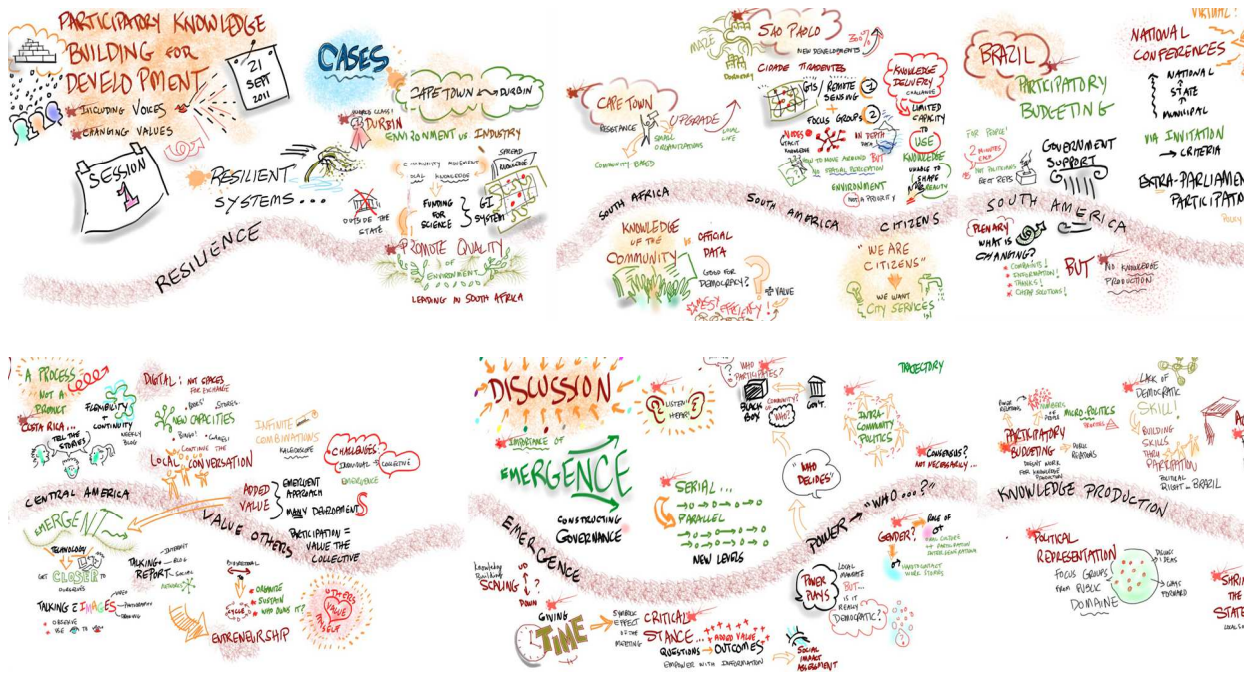 PARTICIPATORY KNOWLEDGE
BUILDING FOR
DEVELOPMENT
INCLUDING VOICES
CHANGING VALUES
21
SEPT
2011
SESSION
1
RESILIENT
SYSTEMS...
RESILIENCE
CASES
CAPE TOWN
DURBIN
WORLD CLASS!
DURBIN
ENVIRONMENT VS. INDUSTRY
COMMUNITY MOVEMENT
KNOWLEDGE
SPREAD
KNOWLEDGE
FUNDING
FOR
SCIENCE
GI
SYSTEM
OUTSIDE THE
STATE
PROMOTE QUALITY
OF
ENVIRONMENT
LEADING IN SOUTH AFRICA
CAPE TOWN
RESISTANCE
SMALL
ORGANIZATIONS
COMMUNITY BASED
UPGRADE
LOCAL
LIFE
SOUTH AFRICA
KNOWLEDGE
OF THE
COMMUNITY
VS
OFFICIAL
DATA
GOOD FOR
DEMOCRACY?
+ VALUE
MESSY EFFICIENCY!
MAZE
SAO PAOLO
300%
NEW DEVELOPMENTS
CIDADE TIRADENTES
GIS/ REMOTE
SENSING
1
FOCUS GROUPS
2
NODES
TACIT
KNOWLEDGE
IN DEPTH
HOW TO MOVE AROUND BUT
NO SPATIAL PERCEPTION
ENVIRONMENT
NOT A PRIORITY
KNOWLEDGE
DELIVERY
CHALLENGE
LIMITED
CAPACITY
TO
USE
KNOWLEDGE
UNABLE TO
SHAPE
REALITY
SOUTH AMERICA
CITIZENS
"WE ARE
CITIZENS"
WE WANT
CITY SERVICES
BRAZIL
PARTICIPATORY
BUDGETING
FOR PEOPLE!
2 MINUTES
EACH
NOT POLITICIANS
ELECT REPS
GOVERNMENT
SUPPORT
SOUTH AMERICA
PLENARY
WHAT IS
CHANGING?
COMPLAINTS!
INFORMATION!
THANKS!
CHEAP SOLUTIONS!
BUT
NO KNOWLEDGE
PRODUCTION
VIRTUAL?
NATIONAL
CONFERENCES
NATIONAL
STATE
MUNICIPAL
VIA INVITATION
CRITERIA
EXTRA-PARLIAMEN
PARTICIPATO
POLICY
A PROCESS
NOT A
PRODUCT
COSTA RICA...
TELL THE
STORIES
FLEXIBILITY
+
CONTINUITY
WEEKLY
BLOG
DIGITAL: NOT SPACES
FOR EXCHANGE
STORES
NEW CAPACITIES
BINGO!
GAMES!
CONTINUE THE
LOCAL CONVERSATION
INFINITE
COMBINATIONS
KALEIDOSCOPE
CHALLENGES!
INDIVIDUAL
COLLECTIVE
EMERGENCE
ADDED
VALUE
EMERGENT
APPROACH
MANY DEVELOPMENTS
PARTICIPATION =
VALUE THE
COLLECTIVE
CENTRAL AMERICA
VALUE OTHERS
EMERGENT
TECHNOLOGY
GET
CLOSER
TO
OURSELVES
TALKING+
REPORT
INTERNET
BLOG
SOCIAL
NETWORKS
TALKING 2 IMAGES
VIDEO
PHOTOGRAPHY
DRAWING
OBSERVE
USE
TO
BIDIRECTIONAL
CYCLE
ORGANIZE
SUSTAIN
WHO RUNS IT?
ENTRENEURSHIP
OTHERS
VALUE
MYSELF
DISCUSSION
LISTEN!
HEAR!
IMPORTANCE OF
EMERGENCE
CONSTRUCTING
GOVERNANCE
SERIAL...
PARALLEL
NEW LEVELS
EMERGENCE
KNOWLEDGE
BUILDING
SCALING
UP
?
DOWN
GIVING
TIME
SYMBOLIC
EFFECT
OF THE
MEETING
CRITICAL
STANCE...
QUESTIONS
ADDED VALUE
OUTCOMES
EMPOWER WITH INFORMATION
SOCIAL
IMPACT
ASSESSMENT
WHO
PARTICIPATES?
BLACK
BOX
COMMUNITY?
WHO?
GOV'T
"WHO
DECIDES"
TRAJECTORY
INTRA-
COMMUNITY
POLITICS
CONSENSUS?
NOT NECESSARILY...
POWER → "WHO...?"
POWER
PLAYS
LOCAL
MANDATE
BUT...
IS IT
REALLY
DEMOCRATIC?
GENDER?
ROLE OF
WORK STORIES
POWER
RELATIONS
NUMBERS
OF
PEOPLE
MICRO-POLITICS
PARTICIPATORY
BUDGETING
DOESN'T WORK
FOR KNOWLEDGE
PRODUCTION
PUBLIC
RELATIONS
LACK OF
DEMOCRATIC
SKILL!
BUILDING
SKILLS
THRU
PARTICIPATION
POLITICAL
RIGHT - BRAZIL
KNOWLEDGE PRODUCTION
POLITICAL
REPRESENTATION
FOCUS GROUPS
FROM PUBLIC
DOMAINE
IDEAS
COMES
FORWARD
SHRIN
THE
STATE